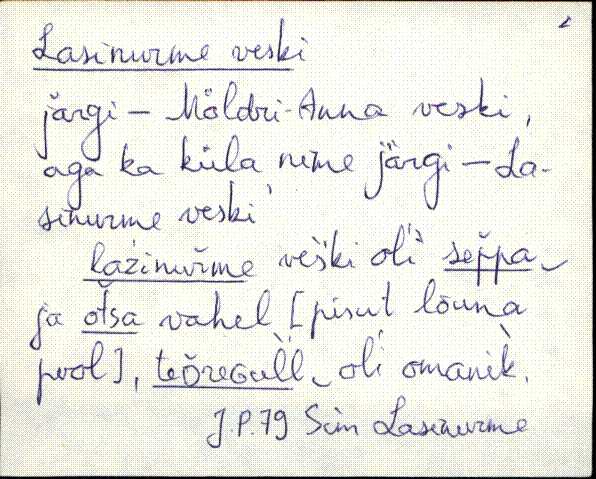 2
Lasinurme veski
järgi — Möldri-Anna veski,
aga ka küla nime järgi — La-
sinurme veski
lazinuřme veški oĺi šeppa
ja otsa vahel [pisut lõuna
pool], teoregull oĺi omanik.
J.P.79 Sim Lasinurme